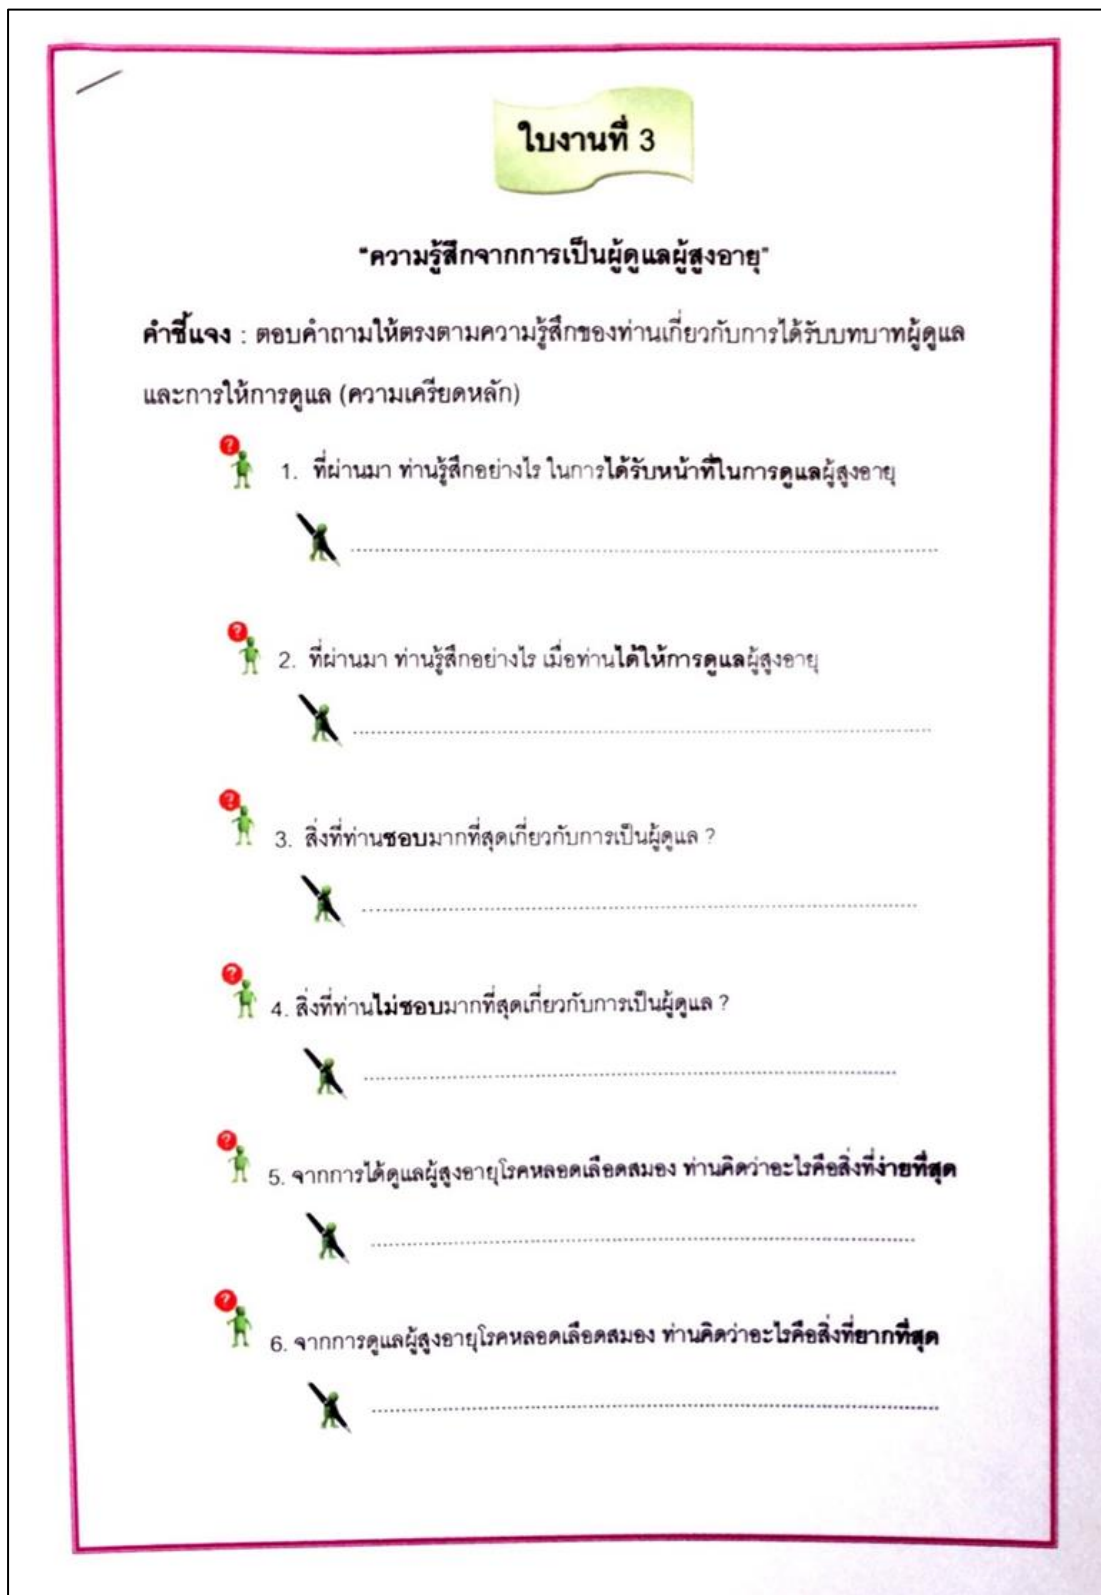 ใบงานที่ 3
"ความรู้สึกจากการเป็นผู้ดูแลผู้สูงอายุ"
คำชี้แจง : ตอบคำถามให้ตรงตามความรู้สึกของท่านเกี่ยวกับการได้รับบทบาทผู้ดูแล
และการให้การดูแล (ความเครียดหลัก)
?
1. ที่ผ่านมา ท่านรู้สึกอย่างไร ในการได้รับหน้าที่ในการดูแลผู้สูงอายุ
?
2. ที่ผ่านมา ท่านรู้สึกอย่างไร เมื่อท่านได้ให้การดูแลผู้สูงอายุ
?
3. สิ่งที่ท่านชอบมากที่สุดเกี่ยวกับการเป็นผู้ดูแล ?
?
4. สิ่งที่ท่านไม่ชอบมากที่สุดเกี่ยวกับการเป็นผู้ดูแล ?
?
5. จากการได้ดูแลผู้สูงอายุโรคหลอดเลือดสมอง ท่านคิดว่าอะไรคือสิ่งที่ง่ายที่สุด
?
6. จากการดูแลผู้สูงอายุโรคหลอดเลือดสมอง ท่านคิดว่าอะไรคือสิ่งที่ยากที่สุด